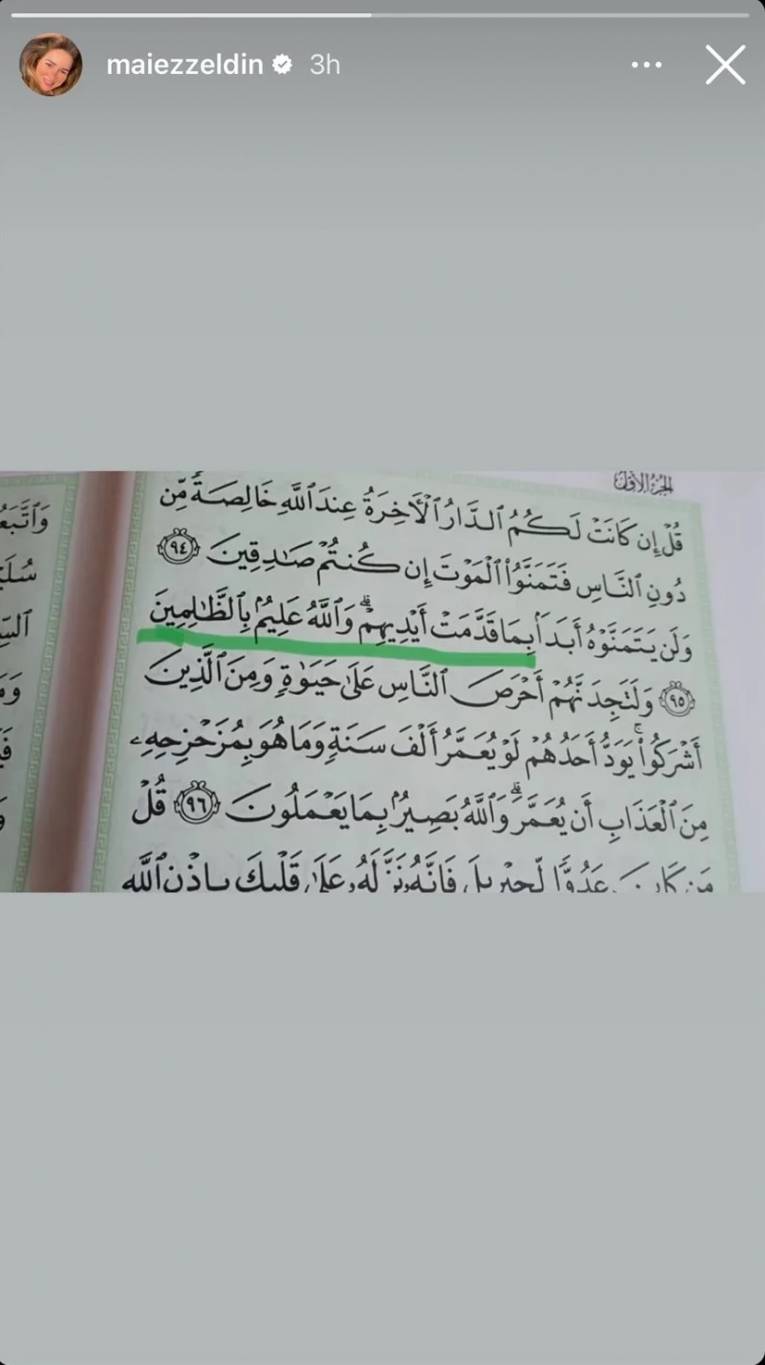 maiezzeldin 3h
الجزء الأول
قُلْ إِن كَانَتْ لَكُمُ ٱلدَّارُ ٱلْأَخِرَةُ عِندَ ٱللَّهِ خَالِصَةً مِّن
دُونِ ٱلنَّاسِ فَتَمَنَّوُا۟ ٱلْمَوْتَ إِن كُنتُمْ صَـٰدِقِينَ ٩٤
وَلَن يَتَمَنَّوْهُ أَبَدًۢا بِمَا قَدَّمَتْ أَيْدِيهِمْ ۗ وَٱللَّهُ عَلِيمٌۢ بِٱلظَّـٰلِمِينَ
٩٥ وَلَتَجِدَنَّهُمْ أَحْرَصَ ٱلنَّاسِ عَلَىٰ حَيَوٰةٍ وَمِنَ ٱلَّذِينَ
أَشْرَكُوا۟ ۚ يَوَدُّ أَحَدُهُمْ لَوْ يُعَمَّرُ أَلْفَ سَنَةٍ وَمَا هُوَ بِمُزَحْزِحِهِۦ
مِنَ ٱلْعَذَابِ أَن يُعَمَّرَ ۗ وَٱللَّهُ بَصِيرٌۢ بِمَا يَعْمَلُونَ ٩٦ قُلْ
مَن كَانَ عَدُوًّا لِّجِبْرِيلَ فَإِنَّهُۥ نَزَّلَهُۥ عَلَىٰ قَلْبِكَ بِإِذْنِ ٱللَّهِ